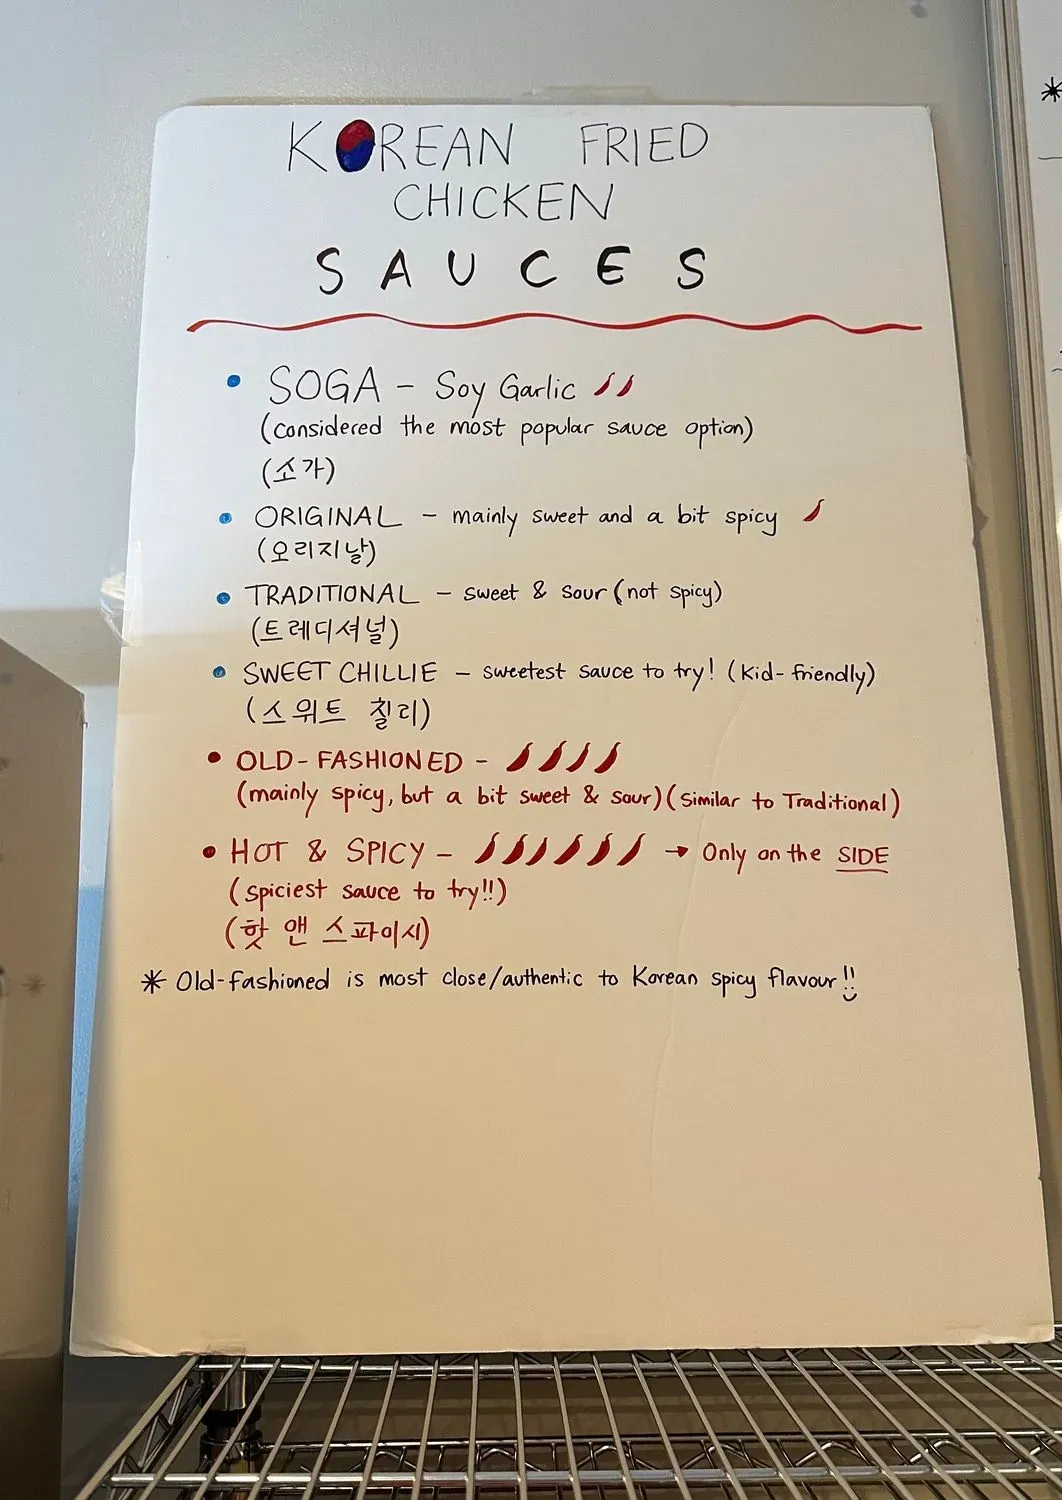 KOREAN FRIED
CHICKEN
SAUCES
• SOGA - Soy Garlic
(considered the most popular sauce option)
(소가)
• ORIGINAL - mainly sweet and a bit spicy
(오리지날)
• TRADITIONAL - sweet & sour (not spicy)
(트레디셔널)
• SWEET CHILLIE - sweetest sauce to try! (kid-friendly)
(스위트 칠리)
• OLD-FASHIONED -
(mainly spicy, but a bit sweet & sour) (similar to Traditional)
• HOT & SPICY - → Only on the SIDE
(spiciest sauce to try!!)
(핫 앤 스파이시)
* Old-fashioned is most close/authentic to Korean spicy flavour!!